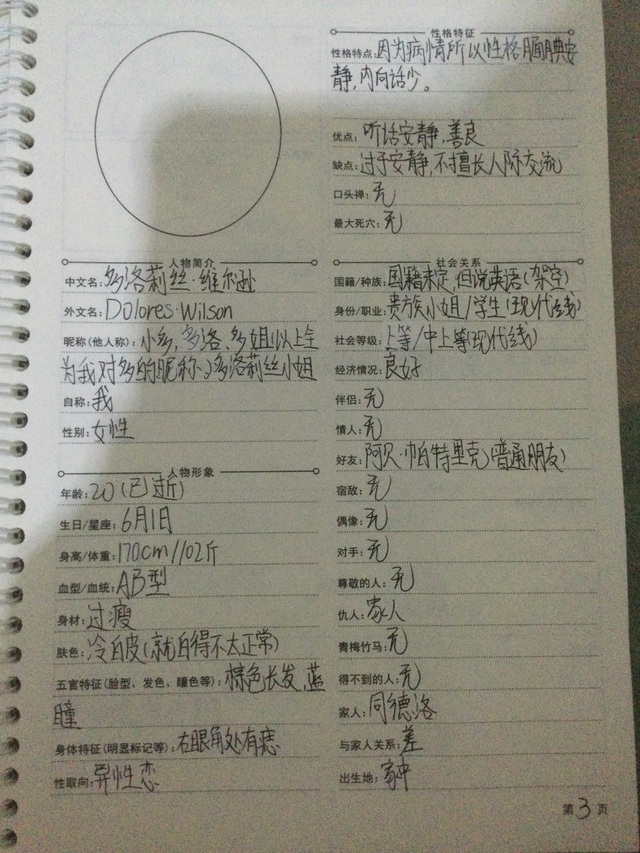 人物简介
中文名：多洛莉丝·维尔逊
外文名：Dolores·Wilson
昵称(他人称)：小多，多洛，多姐(以上全
为我对多的昵称)多洛莉丝小姐
自称：我
性别：女性
人物形象
年龄：20(已逝)
生日/星座：6月1日
身高/体重：170cm/102斤
血型/血统：AB型
身材：过瘦
肤色：冷白皮(就白得不太正常)
五官特征(脸型、发色、瞳色等)：棕色长发，蓝
瞳
身体特征(明显标记等)：右眼角处有痣
性取向：异性恋
性格特征
性格特点：因为病情所以性格腼腆安
静，内向话少。
优点：听话安静，善良
缺点：过于安静，不擅长人际交流
口头禅：无
最大死穴：无
社会关系
国籍/种族：国籍未定，但说英语(架空)
身份/职业：贵族小姐/学生(现代线)
社会等级：上等/中上等(现代线)
经济情况：良好
伴侣：无
情人：无
好友：阿贝·帕特里克(普通朋友)
宿敌：无
偶像：无
对手：无
尊敬的人：无
仇人：家人
青梅竹马：无
得不到的人：无
家人：同德洛
与家人关系：差
出生地：家中
第3页